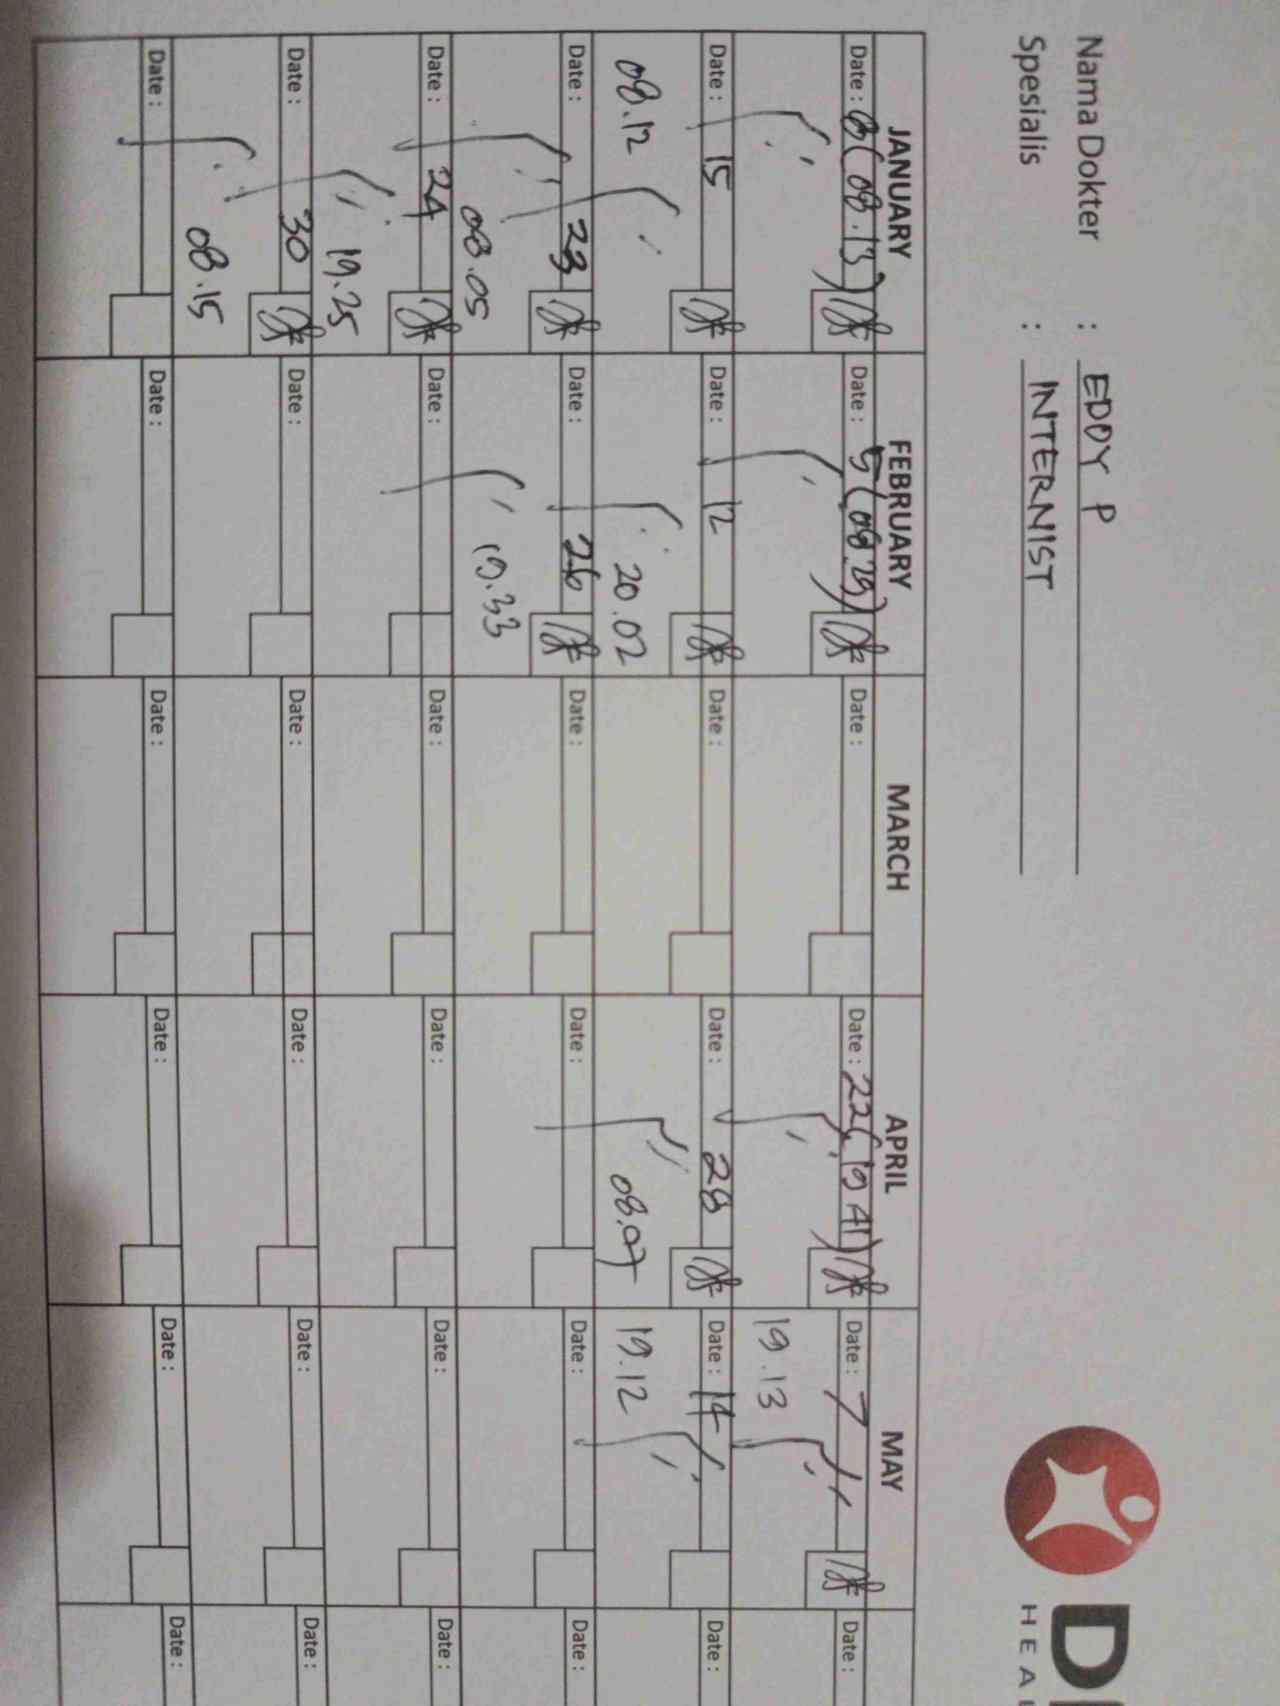 Nama Dokter : EDDY P
Spesialis : INTERNIST
D
HEA
JANUARY FEBRUARY MARCH APRIL MAY
Date: 8 (08.13) Date: 5 (08.29) Date: Date: 22 (19.41) Date: 7 Date:
19.13
Date: 15 Date: 12 Date: Date: 28 Date: 14 Date:
08.12 20.02 08.07 19.12
Date: 23 Date: 26 Date: Date: Date: Date:
08.05 19.33
Date: 24 Date: Date: Date: Date: Date:
19.25
Date: 30 Date: Date: Date: Date: Date:
08.15
Date: Date: Date: Date: Date: Date: